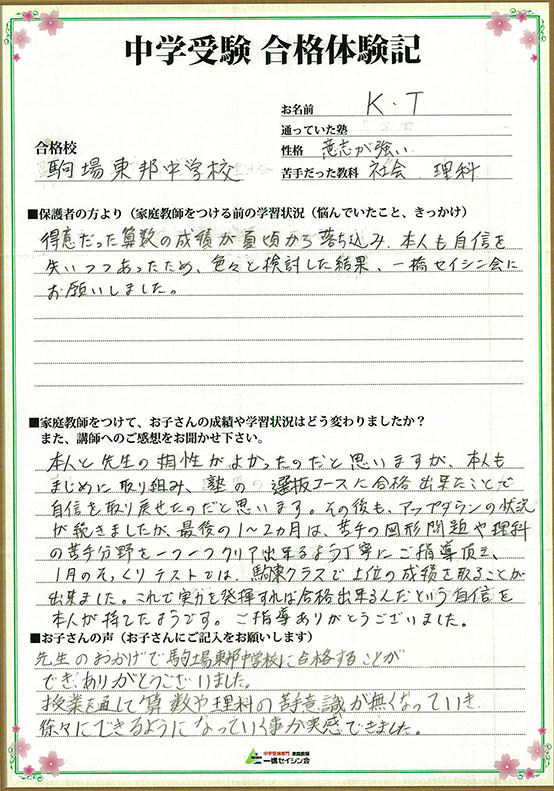 中学受験 合格体験記
お名前 K.T
通っていた塾
合格校
性格 意志が強い
駒場東邦中学校
苦手だった教科 社会 理科
■保護者の方より（家庭教師をつける前の学習状況（悩んでいたこと、きっかけ）
得意だった算数の成績が夏頃から落ち込み、本人も自信を
失いつつあったため、色々と検討した結果、一橋セイシン会に
お願いしました。
■家庭教師をつけて、お子さんの成績や学習状況はどう変わりましたか？
また、講師へのご感想をお聞かせ下さい。
本人と先生の相性がよかったのだと思いますが、本人も
まじめに取り組み、塾の選抜コースに合格出来たことで
自信を取り戻せたのだと思います。その後も、アップダウンの状況
が続きましたが、最後の1〜2ヵ月は、苦手の図形問題や理科
の苦手分野を一つ一つクリア出来るよう丁寧にご指導頂き、
1月のそっくりテストでは、駒東クラスで上位の成績を取ることが
出来ました。これで実力を発揮すれば合格出来るんだという自信を
本人が持てたようです。ご指導ありがとうございました。
■お子さんの声（お子さんにご記入をお願いします）
先生のおかげで駒場東邦中学校に合格することが
でき、ありがとうございました。
授業を通して算数や理科の苦手意識が無くなっていき、
徐々にできるようになっていく事が実感できました。
中学受験専門 家庭教師
一橋セイシン会